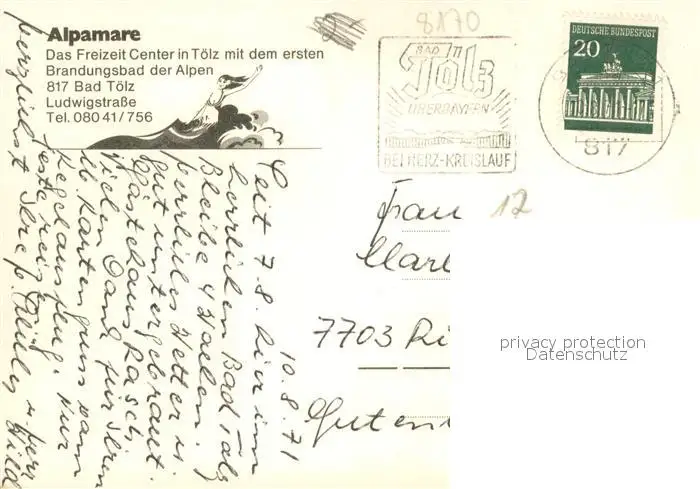 Alpamare
Das Freizeit Center in Tölz mit dem ersten
Brandungsbad der Alpen
817 Bad Tölz
Ludwigstraße
Tel. 080 41/756
8170
BAD
Tölz
OBERBAYERN
BEI HERZ-KREISLAUF
DEUTSCHE BUNDESPOST
20
817
12
10.8.71
Seit 7.8. hier im
herrlichen Bad Tölz
Bleibe 4 Wochen.
herrliches Wetter u.
gut untergebracht.
Gästehaus Rasch,
Vielen Dank für Ihren
lb. Kartengruss vom
Kegelausflug. Nur
herzlichst Ihre
Frau
7703 Ri
Guten
privacy protection
Datenschutz